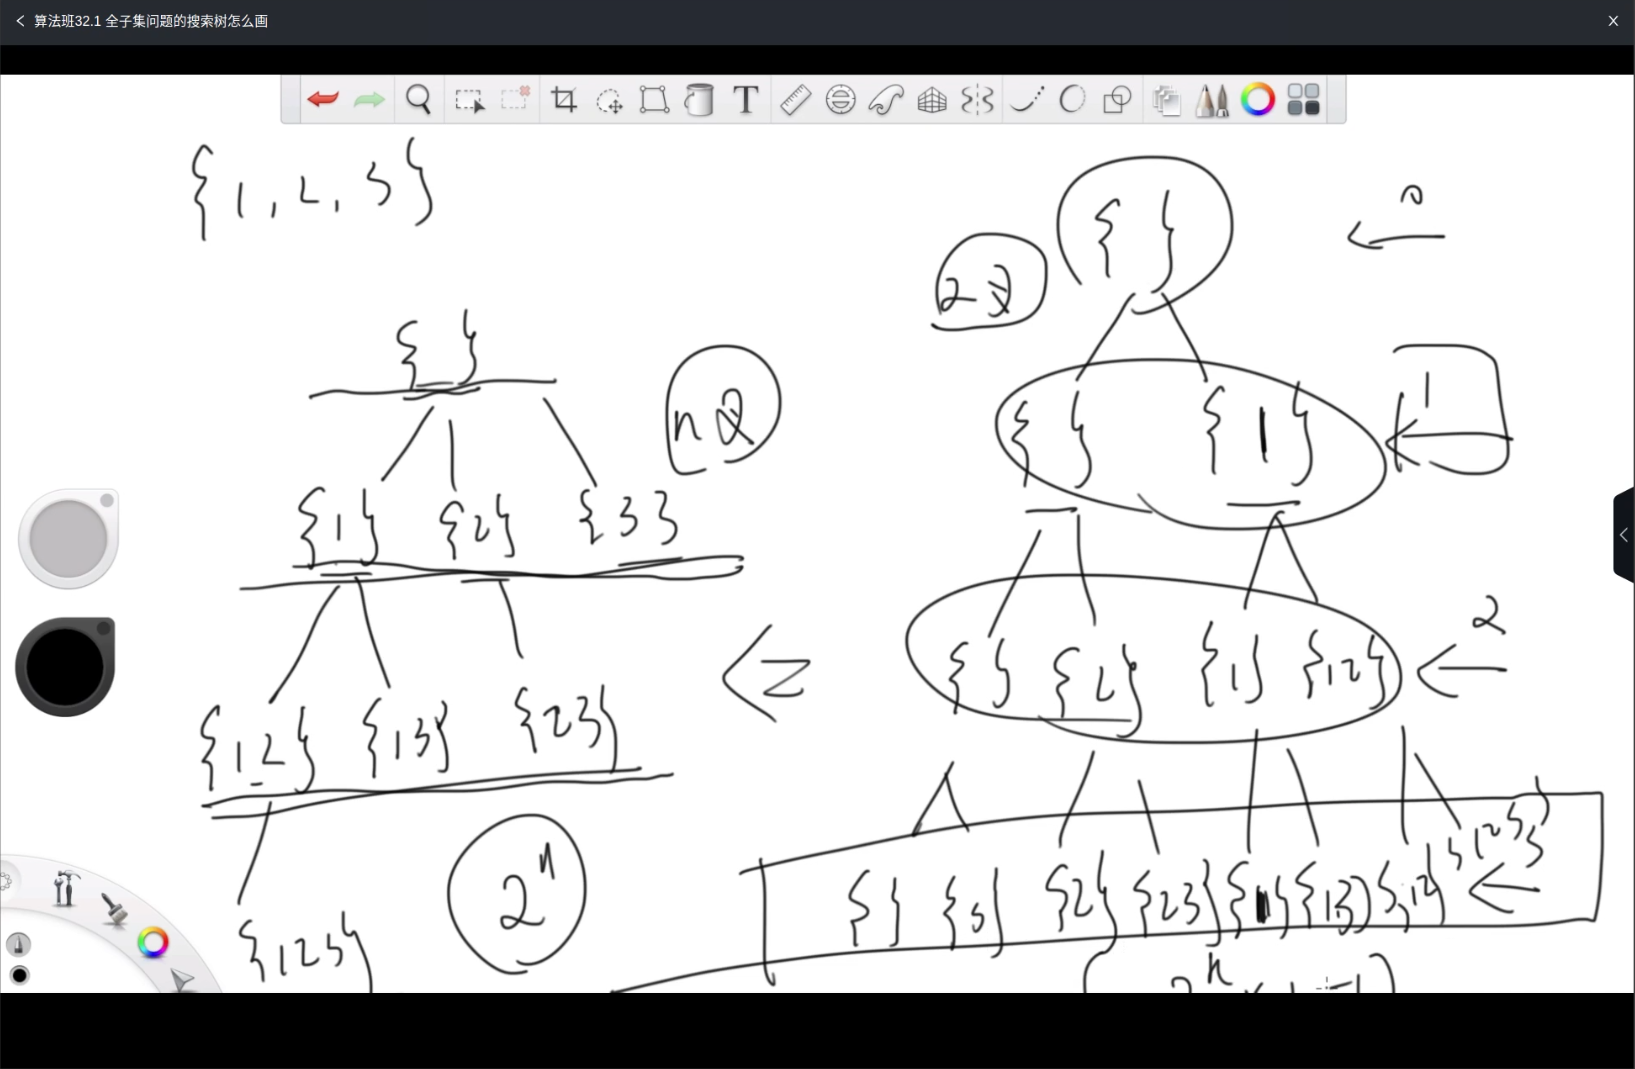 算法班32.1 全子集问题的搜索树怎么画
T
{1, 2, 3}
{ }
n叉
{1} {2} {3}
{12} {13} {23}
{123}
2^n
2叉
{ }
0
{ } {1}
1
{ } {2} {1} {12}
2
{ } {3} {2} {23} {1} {13} {12} {123}